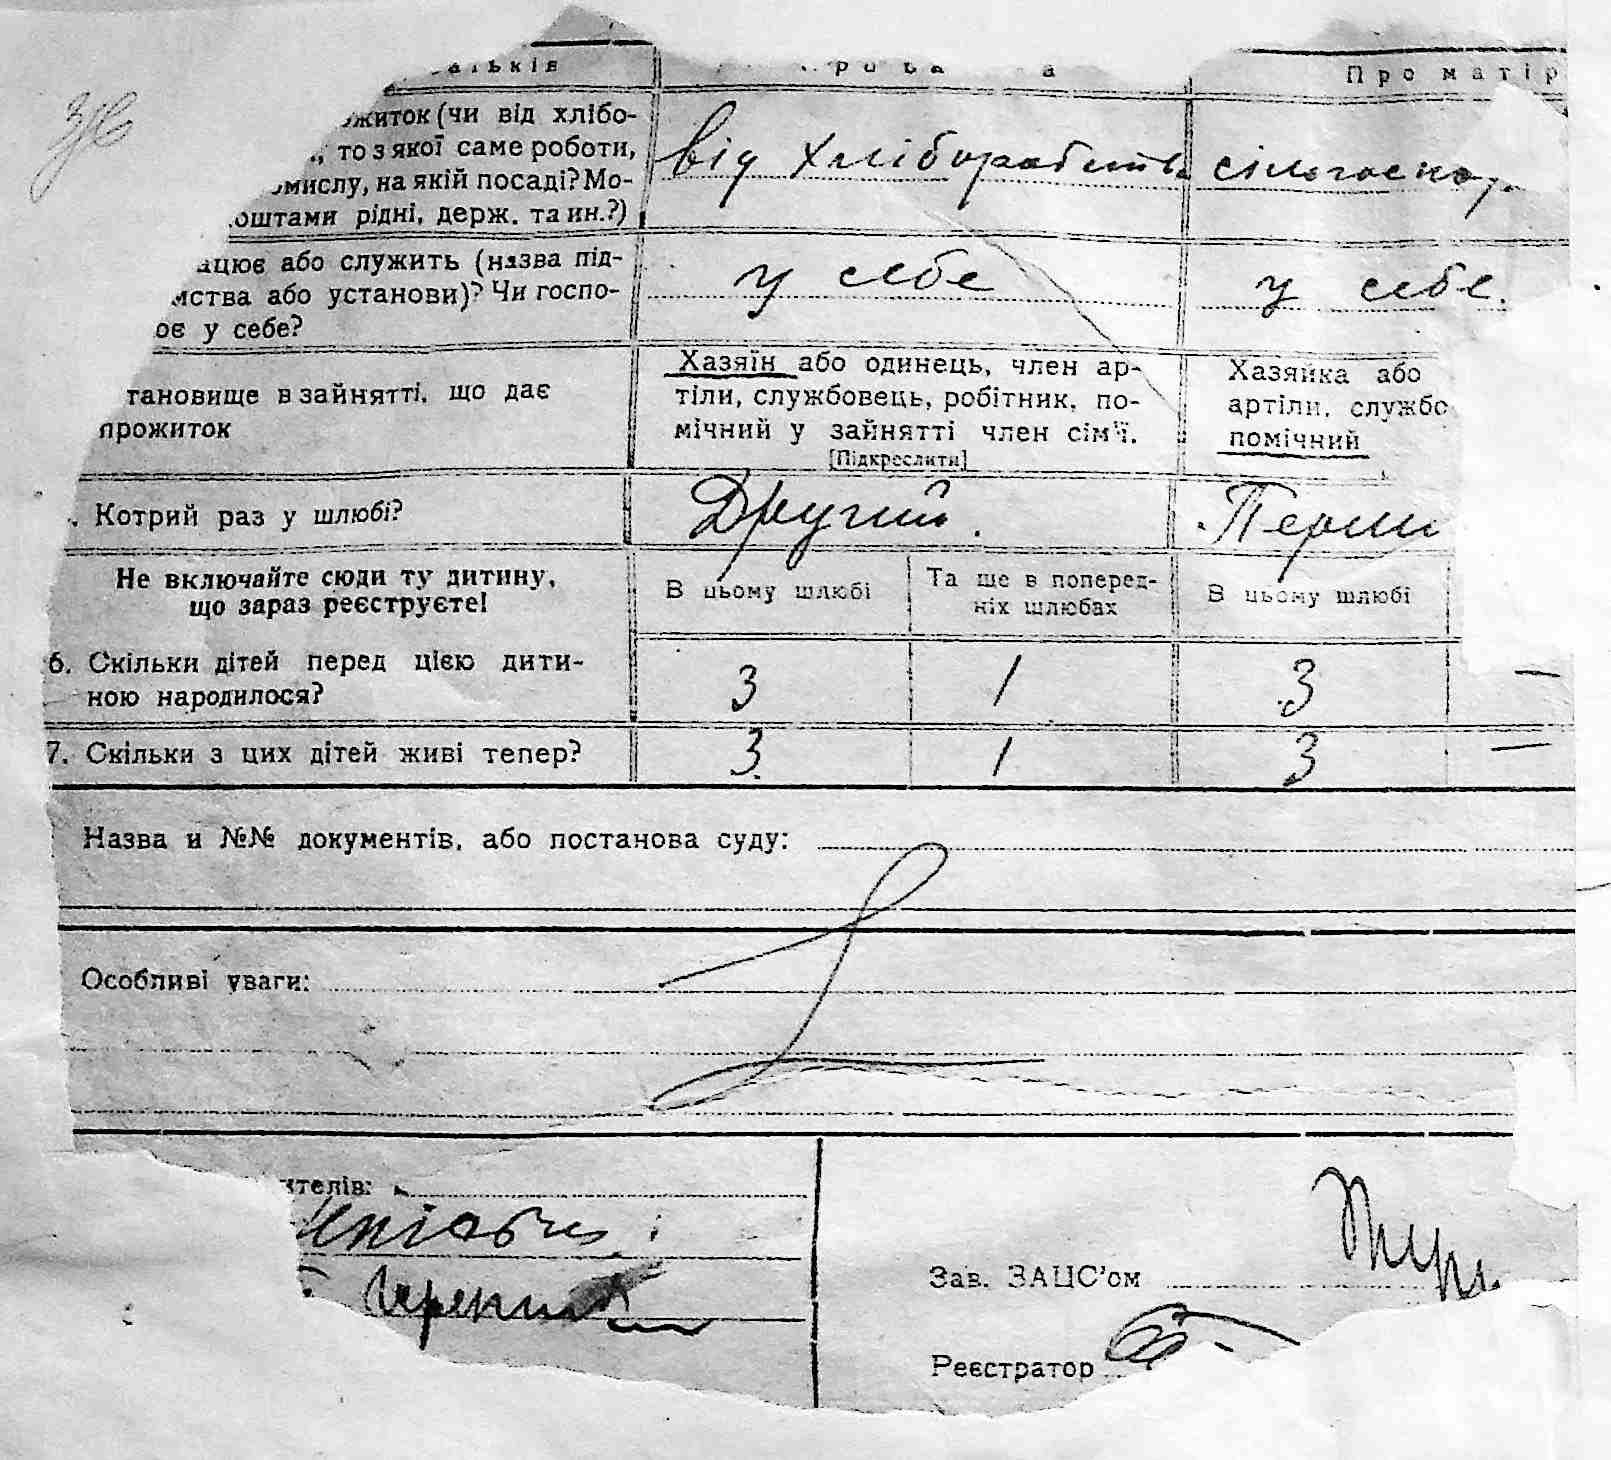 атьків
Про матір
житок (чи від хлібо-
то з якої саме роботи,
омислу, на якій посаді? Мо-
оштами рідні, держ. та ин.?)
від хліборобства
сільгоспод.
ацює або служить (назва під-
мства або установи)? Чи госпо-
ює у себе?
у себе
у себе.
тановище в зайнятті, що дає
прожиток
Хазяїн або одинець, член ар-
тіли, службовець, робітник, по-
мічний у зайнятті член сім'ї.
[Підкреслити]
Хазяйка або
артіли, службо
помічний
. Котрий раз у шлюбі?
Другий.
Перши
Не включайте сюди ту дитину,
що зараз реєструєте!
В цьому шлюбі
Та ще в поперед-
ніх шлюбах
В цьому шлюбі
6. Скільки дітей перед цією дити-
ною народилося?
3
1
3
—
7. Скільки з цих дітей живі тепер?
3
1
3
—
Назва и №№ документів, або постанова суду:
Особливі уваги:
ителів:
Зав. ЗАЦС'ом
Реєстратор